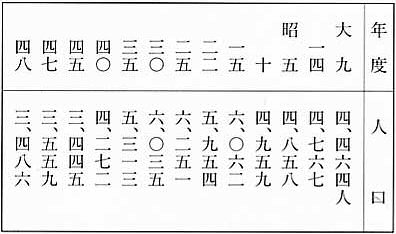 年度 人口
大九 四、四六四人
一四 四、七六七
昭五 四、八五八
十 四、九五九
一五 六、〇六二
二二 五、九五四
二五 六、二五一
三〇 六、〇三五
三五 五、一三三
四〇 四、二七二
四五 三、四四五
四七 三、五五九
四八 三、四八六